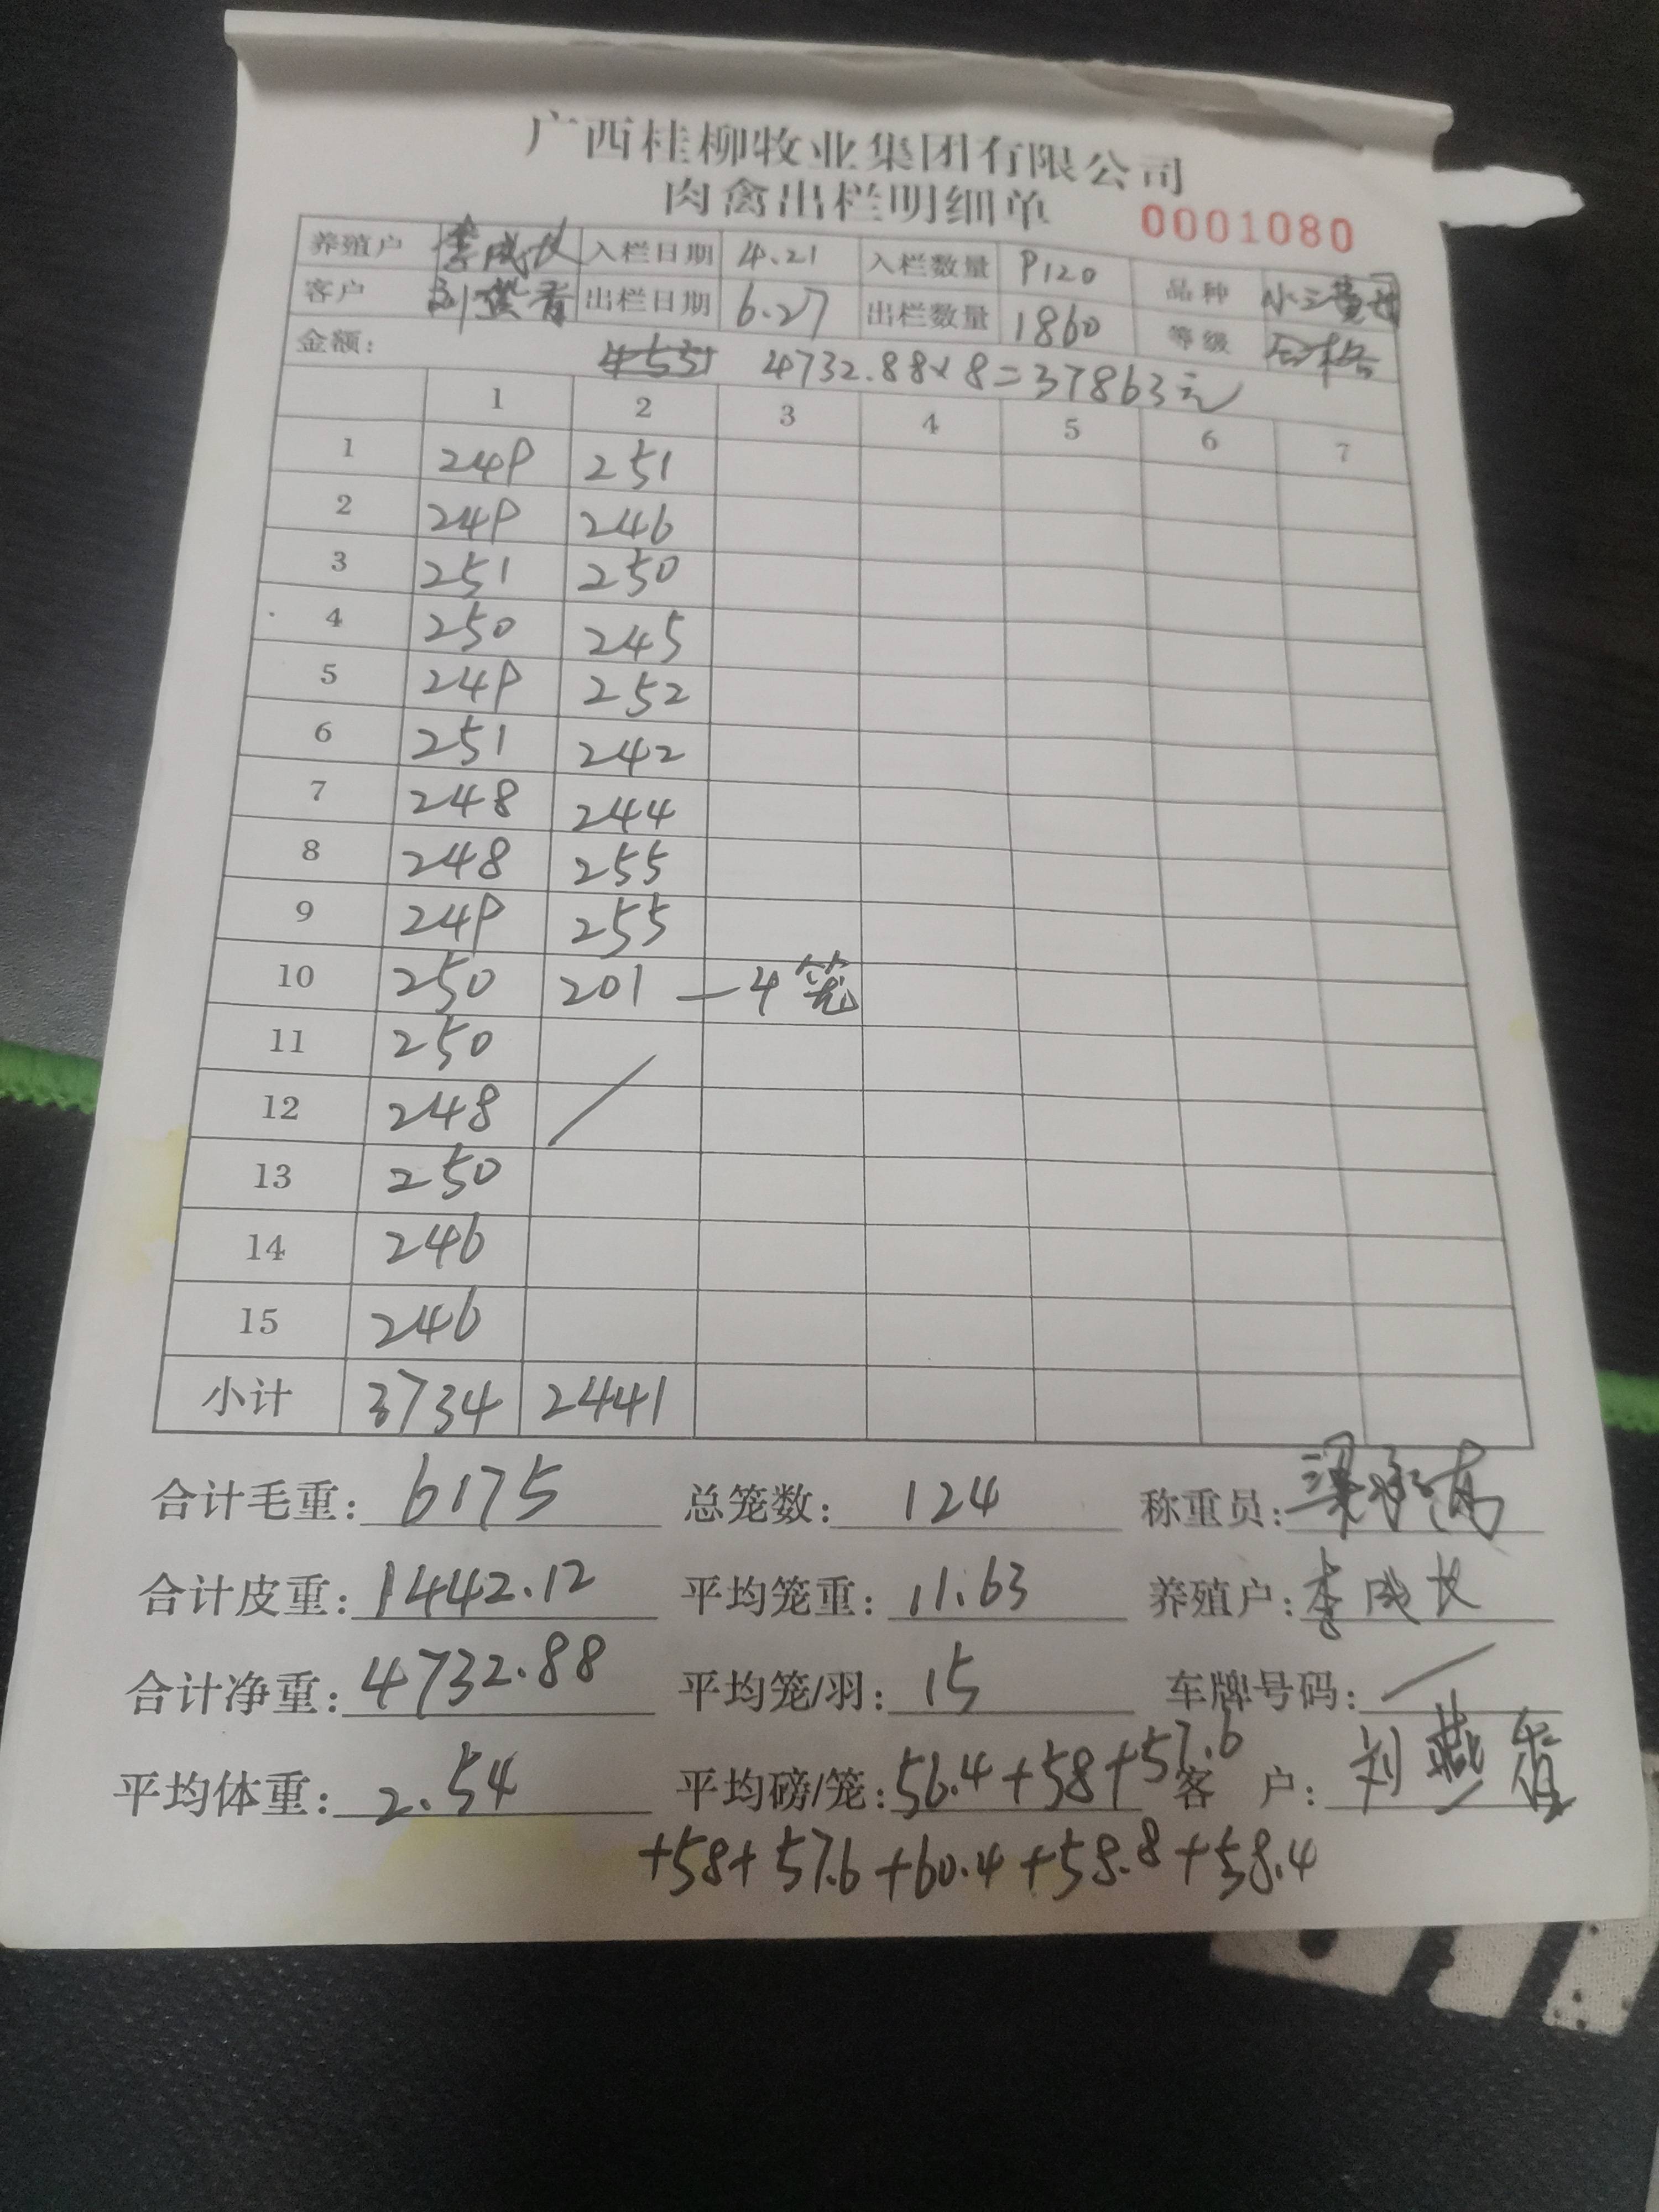 广西桂柳牧业集团有限公司
肉禽出栏明细单 0001080
养殖户 李成长 入栏日期 4.21 入栏数量 9120 品种
客户 刘燕香 出栏日期 6.27 出栏数量 1860 等级 合格
金额: 4732.88×8=37863元
1 2 3 4 5 6 7
1 249 251
2 249 246
3 251 250
4 250 245
5 249 252
6 251 242
7 248 244
8 248 255
9 249 255
10 250 201 — 4笼
11 250
12 248
13 250
14 246
15 246
小计 3734 2441
合计毛重: 6175 总笼数: 124 称重员:
合计皮重: 1442.12 平均笼重: 11.63 养殖户: 李成长
合计净重: 4732.88 平均笼/羽: 15 车牌号码: /
平均体重: 2.54 平均磅/笼: 56.4+58+57.6 客 户: 刘燕香
+58+57.6+60.4+58.8+58.4